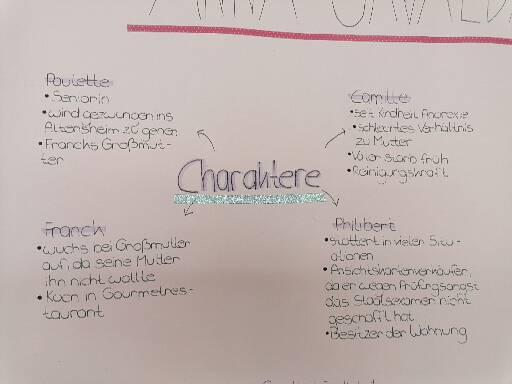 ANNA GAVALDA
Charaktere
Paulette
• Seniorin
• wird gezwungen ins
Altersheim zu gehen
• Francks Großmut-
ter
Camille
• seit Kindheit Anorexie
• schlechtes Verhältnis
zu Mutter
• Vater starb früh
• Reinigungskraft
Franck
• wuchs bei Großmutter
auf, da seine Mutter
ihn nicht wollte
• Koch in Gourmetres-
taurant
Philibert
• stottert in vielen Situ-
ationen
• Ansichtskartenverkäufer,
da er wegen Prüfungsangst
das Staatsexamen nicht
geschafft hat
• Besitzer der Wohnung